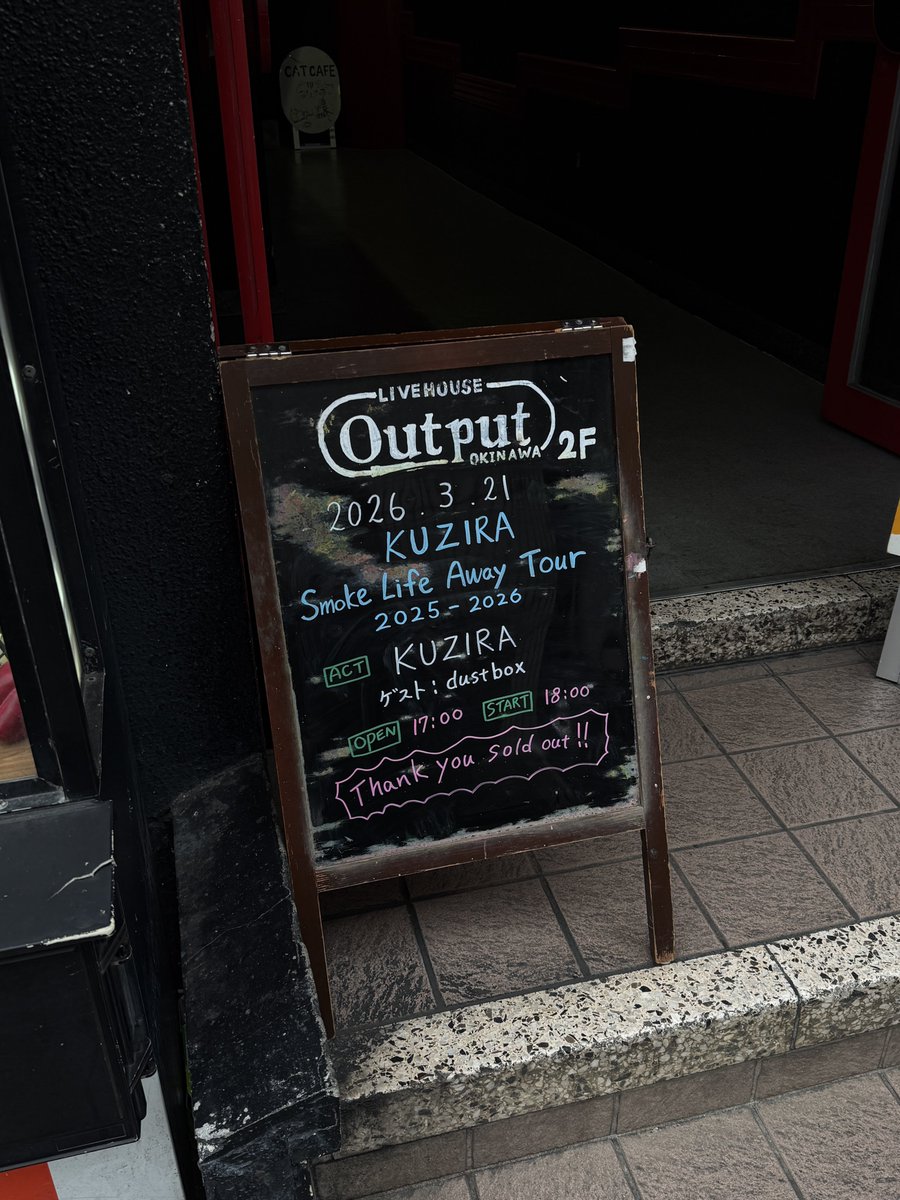 CAT CAFE
LIVEHOUSE
Output
OKINAWA
2F
2026.3.21
KUZIRA
Smoke Life Away Tour
2025-2026
ACT KUZIRA
ゲスト：dustbox
OPEN 17:00 START 18:00
Thank you sold out!!